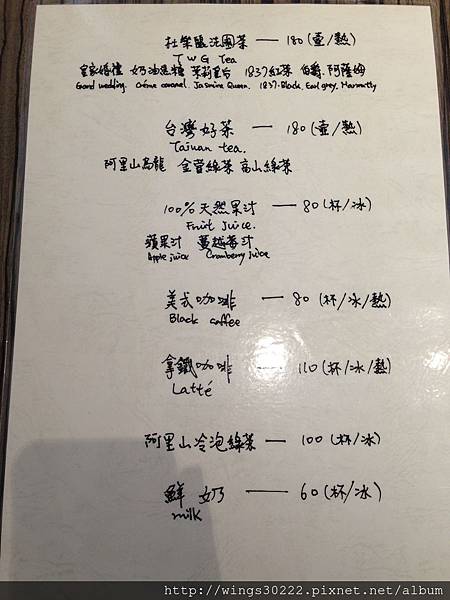 杜樂麗法國茶 — 180(壺/熱)
TWG Tea
皇家婚禮 奶油焦糖 茉莉皇后 1837紅茶 伯爵.阿薩姆
Grand wedding. Créme caramel. Jasmine Queen. 1837.Black. Earl grey.
台灣好茶 — 180(壺/熱)
Taiwan tea.
阿里山烏龍 金萱綠茶 高山綠茶
100%天然果汁 — 80(杯/冰)
Fruit juice.
蘋果汁 蔓越莓汁
Apple juice Cranberry juice
美式咖啡 — 80(杯/冰/熱)
Black coffee
拿鐵咖啡 — 110(杯/冰/熱)
Latté
阿里山冷泡綠茶 — 100(杯/冰)
鮮奶 — 60(杯/冰)
milk
http://wings30222.pixnet.net/album